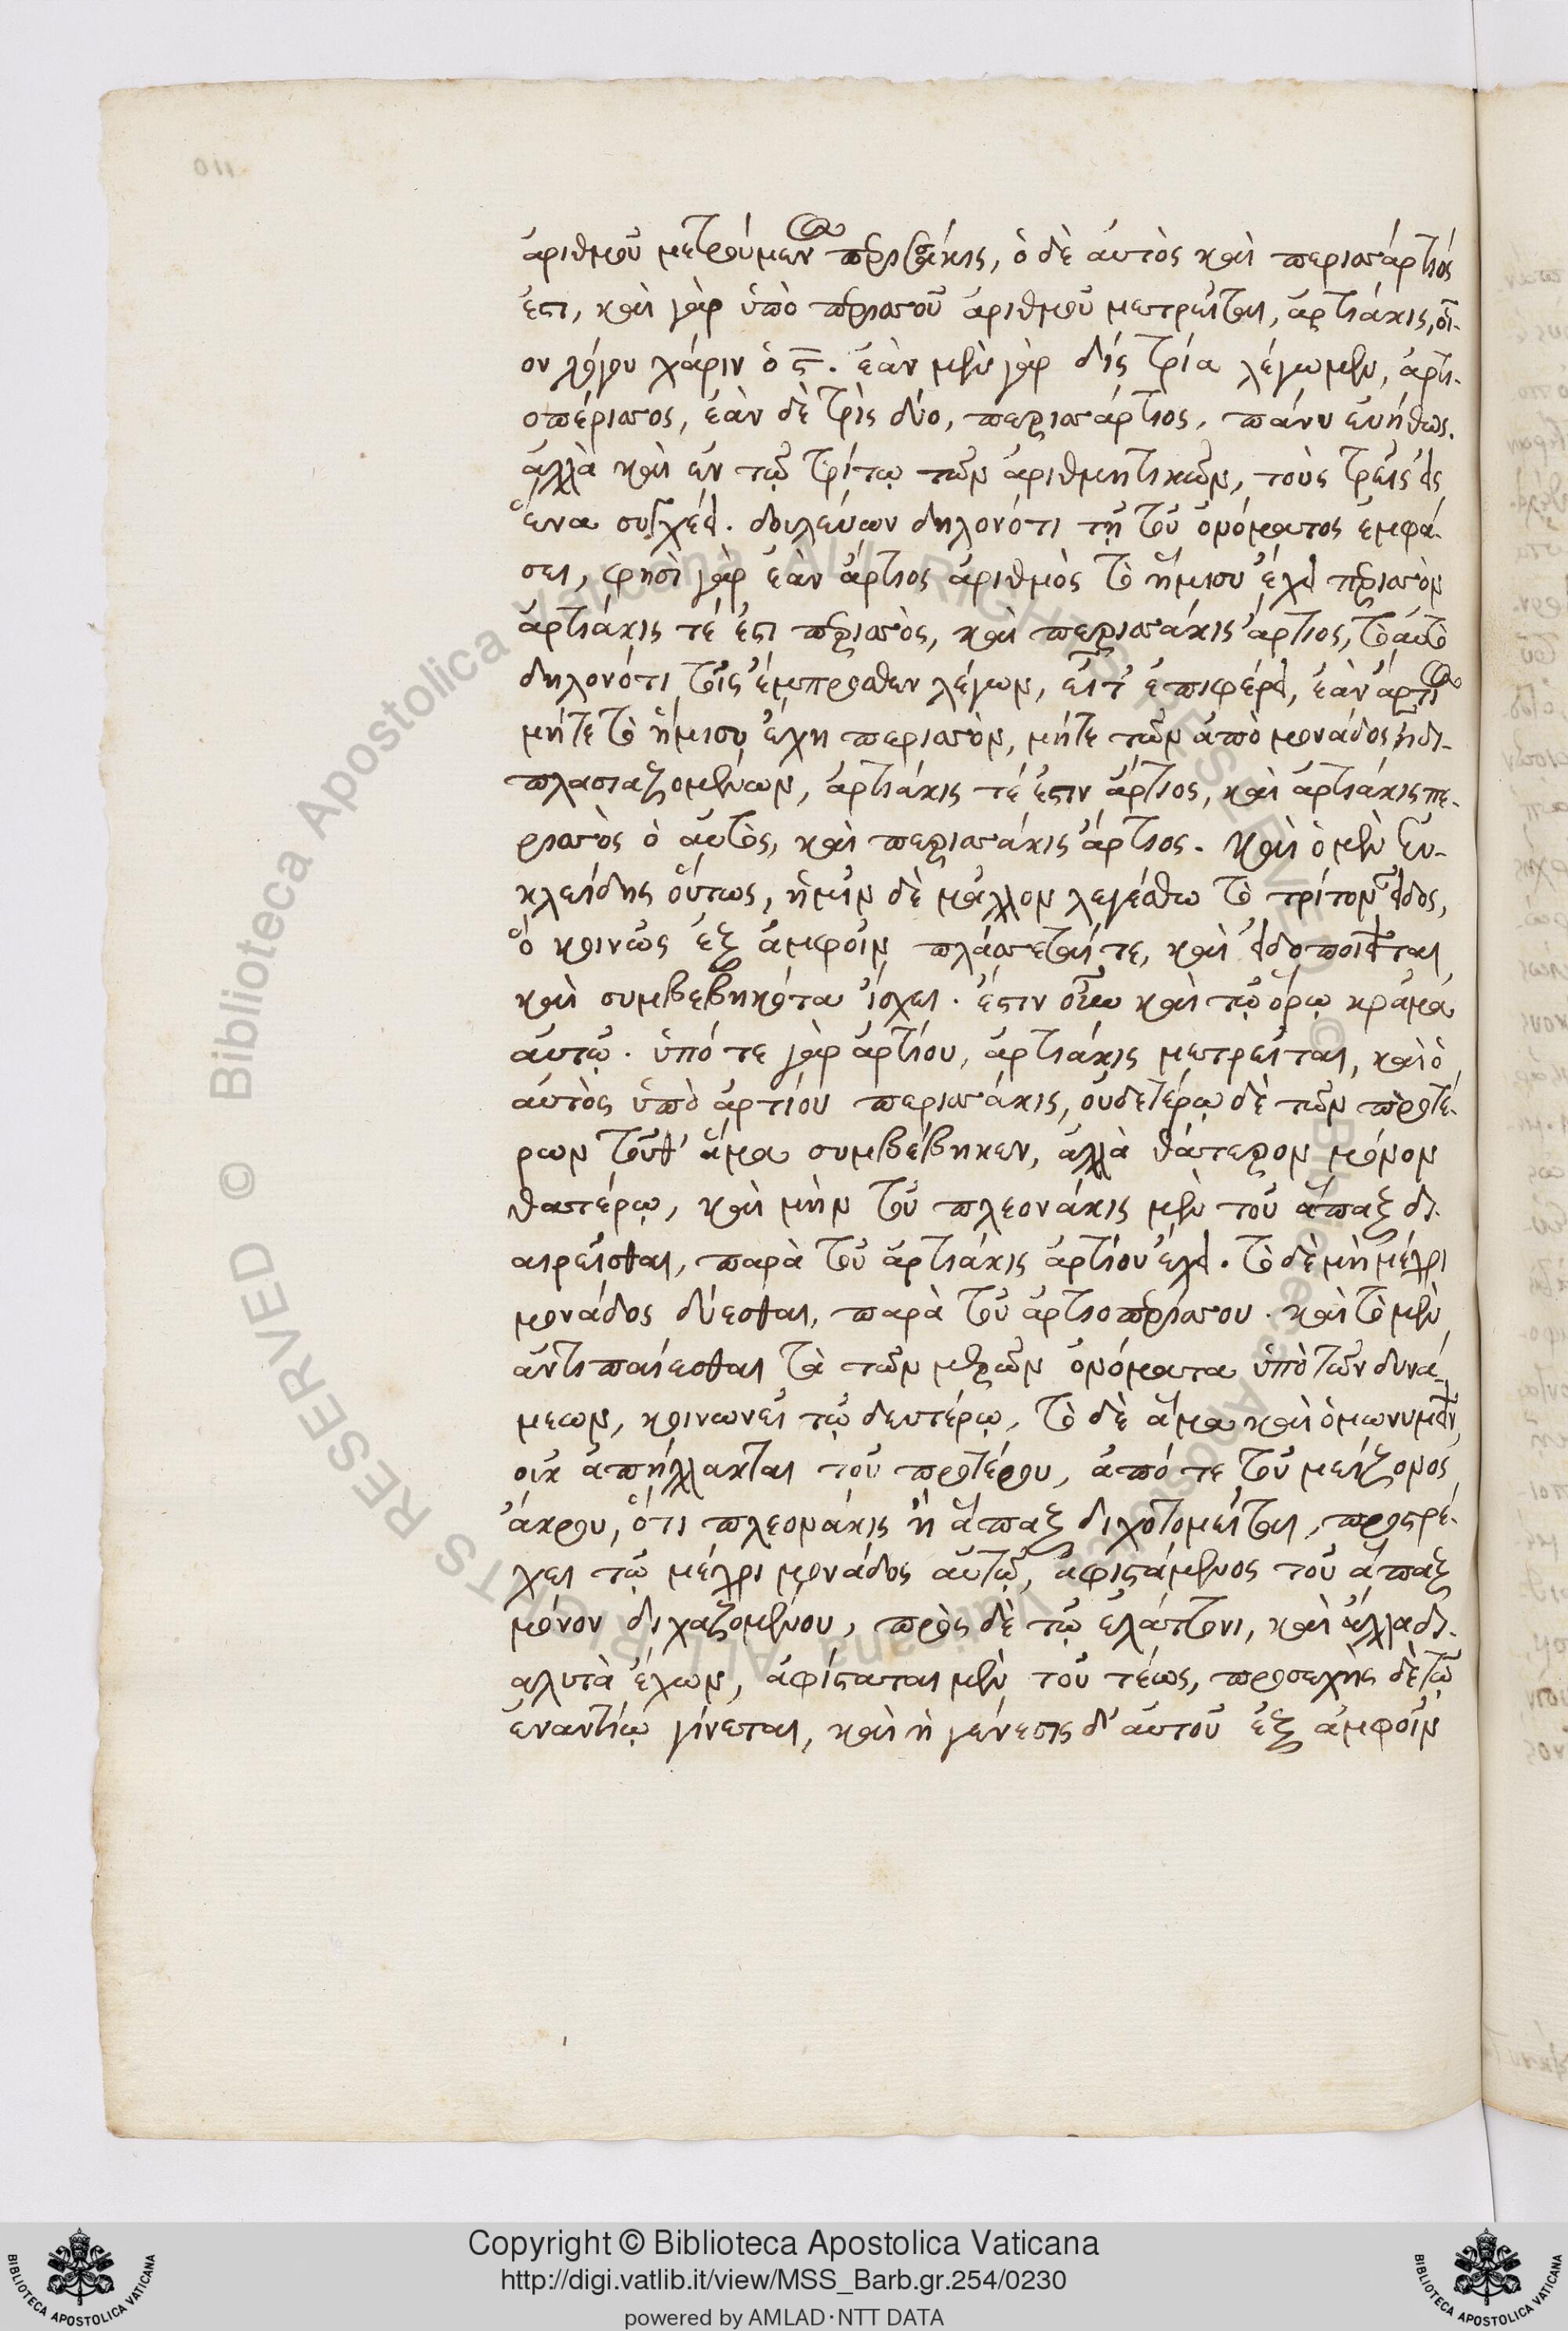 ἀριθμοῦ μετρούμενος περισσάκις, ὁ δὲ αὐτὸς καὶ περισσάρτιός
ἐστι, καὶ γὰρ ὑπὸ περισσοῦ ἀριθμοῦ μετρεῖται, ἀρτιάκις, οἷ-
ον λόγου χάριν ὁ ϛ. ἐὰν μὲν γὰρ δὶς τρία λέγωμεν, ἀρτι-
οπέρισσος, ἐὰν δὲ τρὶς δύο, περισσάρτιος, πάνυ εὐήθως.
ἀλλὰ καὶ ἐν τῷ τρίτῳ τῶν ἀριθμητικῶν, τοὺς τρεῖς εἰς
ἕνα συγχέει. δουλεύων δηλονότι τῇ τοῦ ὀνόματος ἐμφά-
σει, φησὶ γὰρ ἐὰν ἄρτιος ἀριθμὸς τὸ ἥμισυ ἔχει περισσὸν
ἀρτιάκις τέ ἐστι περισσὸς, καὶ περισσάκις ἄρτιος, τὸ αὐτὸ
δηλονότι τοῖς ἔμπροσθεν λέγων, εἶτ' ἐπιφέρει, ἐὰν ἄρτιος
μήτε τὸ ἥμισυ ἔχη περισσὸν, μήτε τῶν ἀπὸ μονάδος ᾖ δι-
πλασιαζομένων, ἀρτιάκις τέ ἐστιν ἄρτιος, καὶ ἀρτιάκις πε-
ρισσὸς ὁ αὐτὸς, καὶ περισσάκις ἄρτιος. καὶ ὁ μὲν Εὐ-
κλείδης οὕτως, ἡμῖν δὲ μᾶλλον λεγέσθω τὸ τρίτον εἶδος,
ὃ κοινῶς ἐξ ἀμφοῖν πλάσσεταί τε, καὶ εἰδοποιεῖται
καὶ συμβεβηκότα ἴσχει. ἔστιν οὖν καὶ τῷ ὅρῳ κρᾶμα
αὐτῷ. ὑπό τε γὰρ ἀρτίου, ἀρτιάκις μετρεῖται, καὶ ὁ
αὐτὸς ὑπὸ ἀρτίου περισσάκις, οὐδετέρῳ δὲ τῶν προτέ-
ρων τοῦθ' ἅμα συμβέβηκεν, ἀλλὰ θάτερον μόνον
θατέρῳ, καὶ μὴν τοῦ πλεονάκις μὲν τοῦ ἅπαξ δι-
αιρεῖσθαι, παρὰ τοῦ ἀρτιάκις ἀρτίου ἔχει. τὸ δὲ μὴ μέχρι
μονάδος λύεσθαι, παρὰ τοῦ ἀρτιοπερίσσου. καὶ τὸ μὲν
ἀντιπαίεσθαι τὰ τῶν μερῶν ὀνόματα ὑπὸ τῶν δυνά-
μεων, κοινωνεῖ τῷ δευτέρῳ, τὸ δὲ ἅμα καὶ ὁμωνυμεῖν,
οὐκ ἀπήλλακται τοῦ προτέρου, ἀπό τε τοῦ μείζονος
ἄκρου, ὅτι πλεονάκις ἢ ἅπαξ διχοτομεῖται, προστρέ-
χει τῷ μέχρι μονάδος αὐτῷ, ἀφιστάμενος τοῦ ἅπαξ
μόνον διχαζομένου, πρὸς δὲ τῷ ἐλάττονι, καὶ ἄλλα δι-
αλυτὰ ἔχων, ἀφίσταται μὲν τοῦ τέως, προσεχὴς δὲ τῷ
ἐναντίῳ γίνεται, καὶ ἡ γένεσις δ' αὐτοῦ ἐξ ἀμφοῖν
Copyright © Biblioteca Apostolica Vaticana
http://digi.vatlib.it/view/MSS_Barb.gr.254/0230
powered by AMLAD·NTT DATA